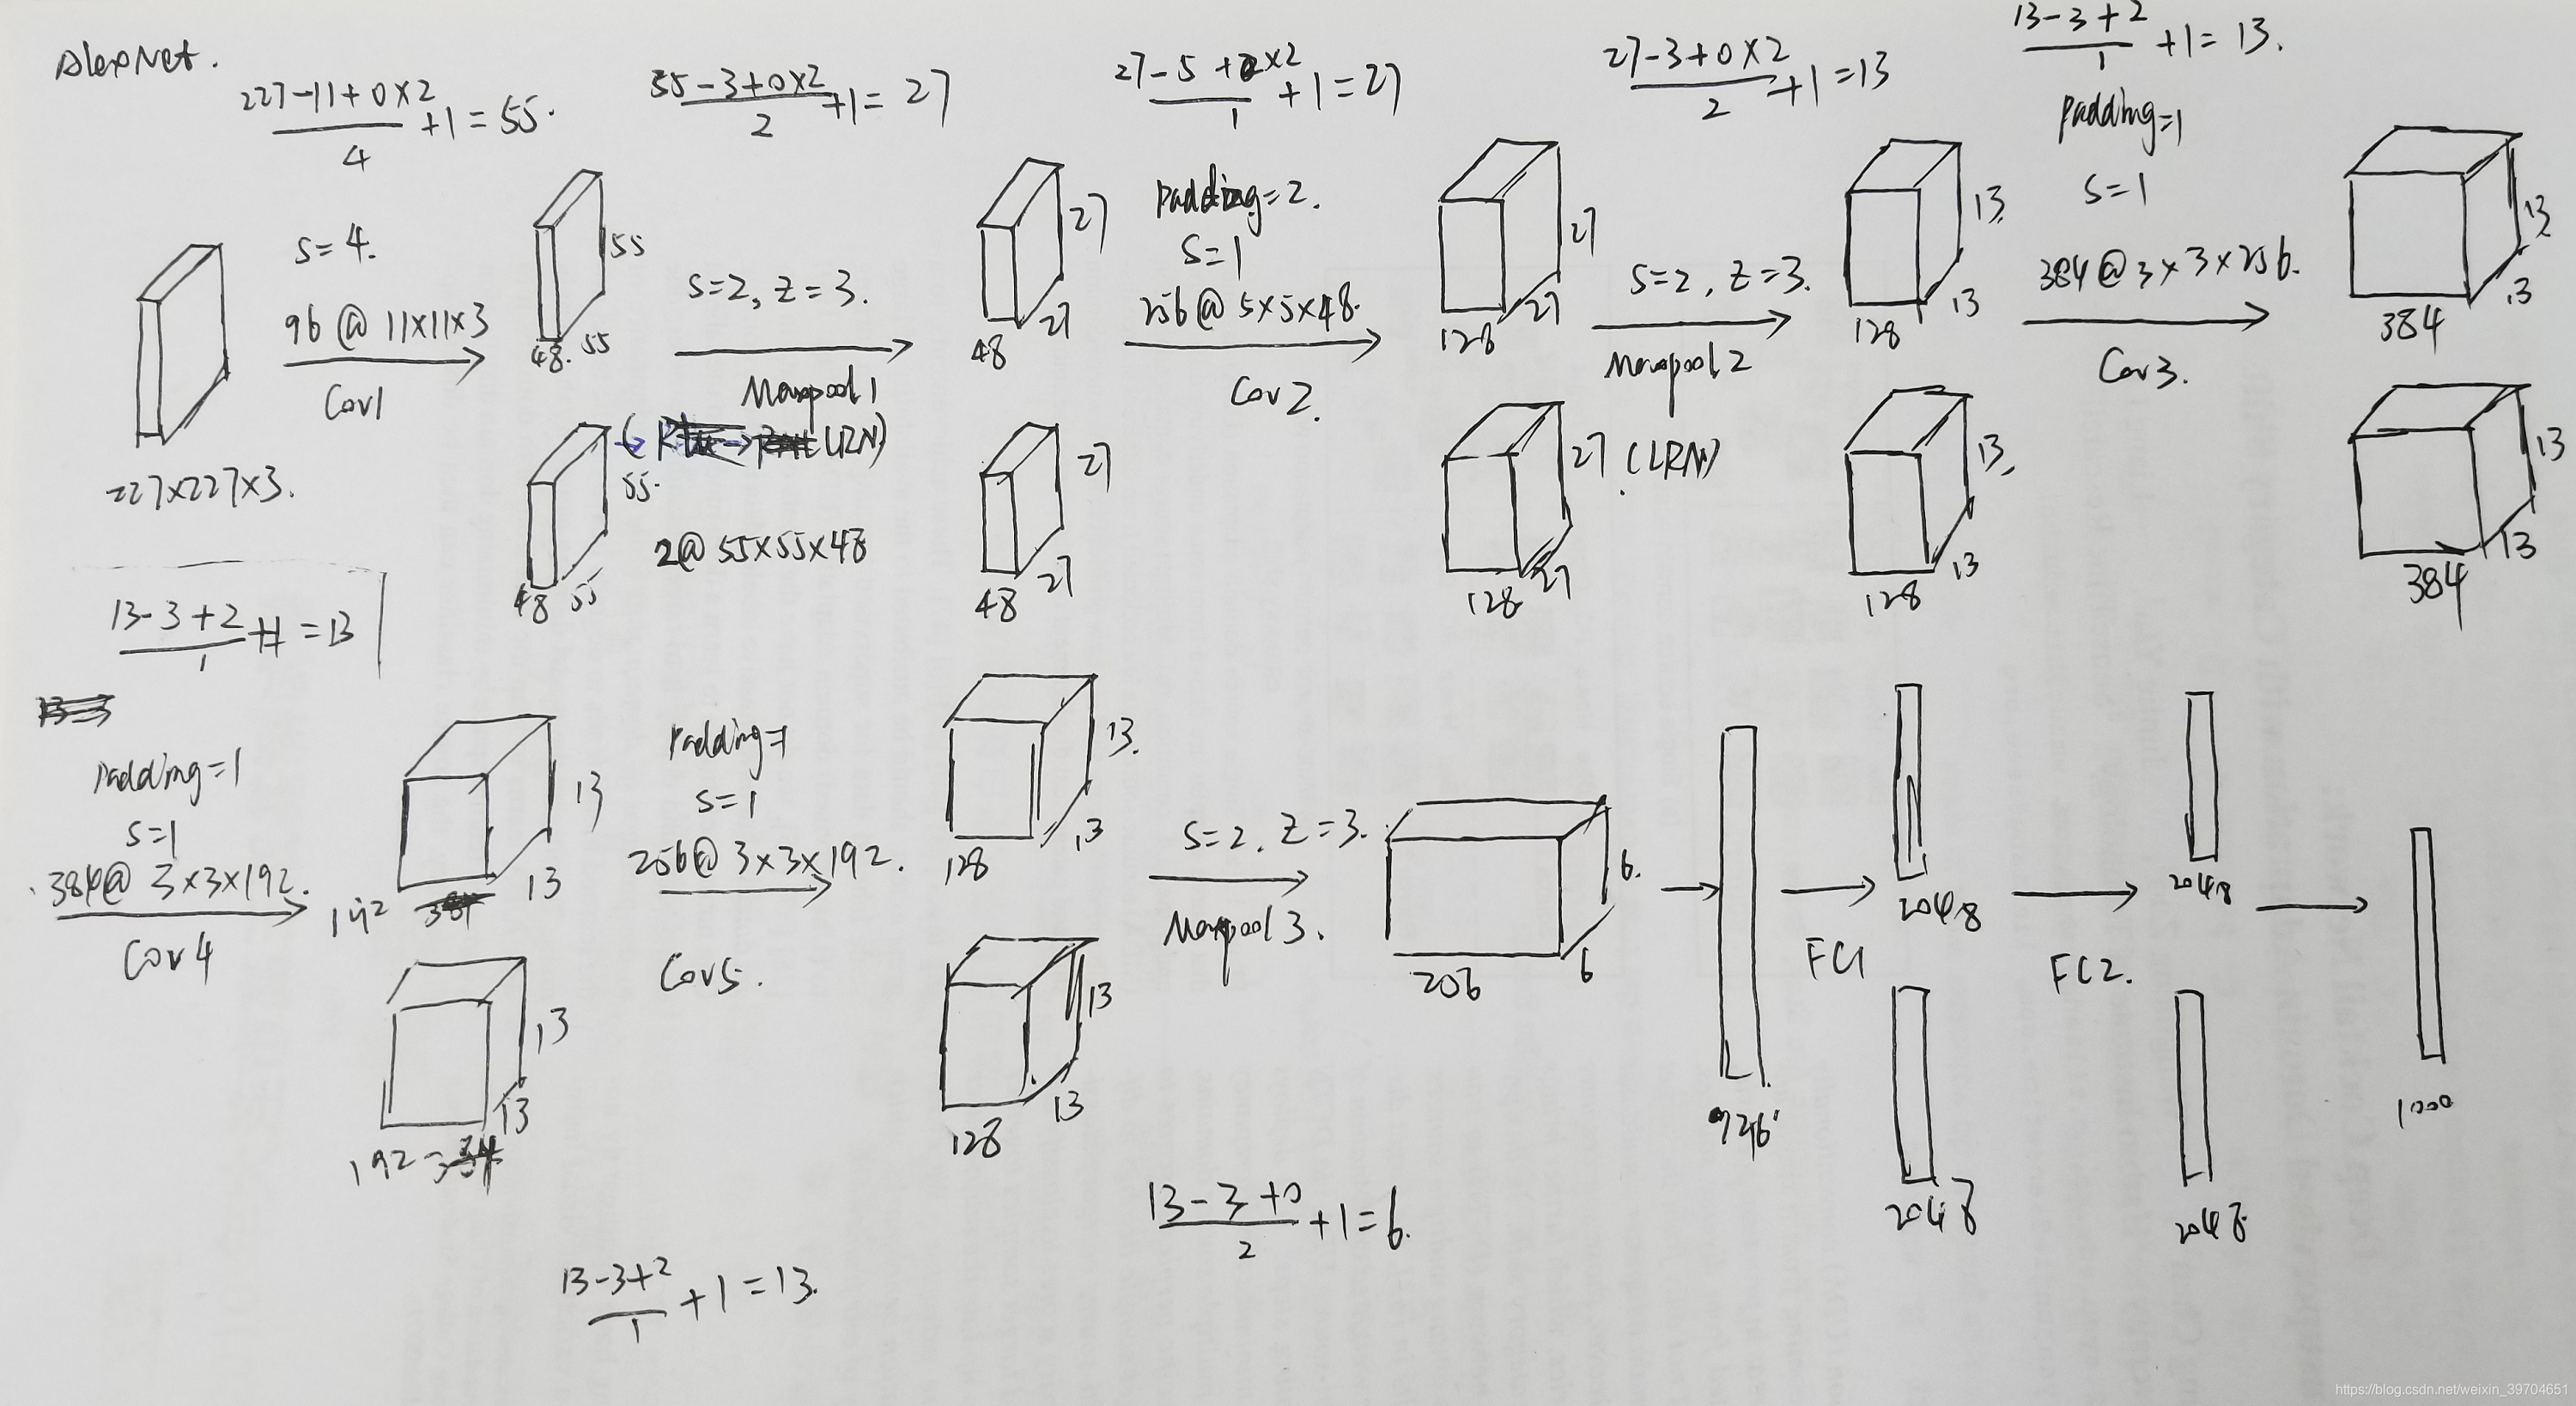 AlexNet.
227-11+0×2 / 4 +1=55.
55-3+0×2 / 2 +1=27
27-5+2×2 / 1 +1=27
27-3+0×2 / 2 +1=13
13-3+2 / 1 +1=13.
Padding=1
s=1
384@3×3×256.
Cov3.
s=4.
96@11×11×3
Cov1
227×227×3.
55
48. 55
s=2, z=3.
Maxpool1
(LRN)
55.
2@55×55×48
48 55
27
27
48
Padding=2.
s=1
256@5×5×48.
Cov2.
27
27
48
27
27
128
s=2, z=3.
Maxpool2
27 (LRN)
27
128
13
13
128
13
13
128
13
13
384
13
13
384
13-3+2 / 1 +1=13
Padding=1
s=1
384@3×3×192.
Cov4
13
13
192
13
13
192
Padding=1
s=1
256@3×3×192.
Cov5.
13.
13
128
13
13
128
s=2, z=3.
Maxpool3.
6.
6
256
FC1
2048
2048
FC2.
2048
2048
1000
13-3+0 / 2 +1=6.
13-3+2 / 1 +1=13.
https://blog.csdn.net/weixin_39704651